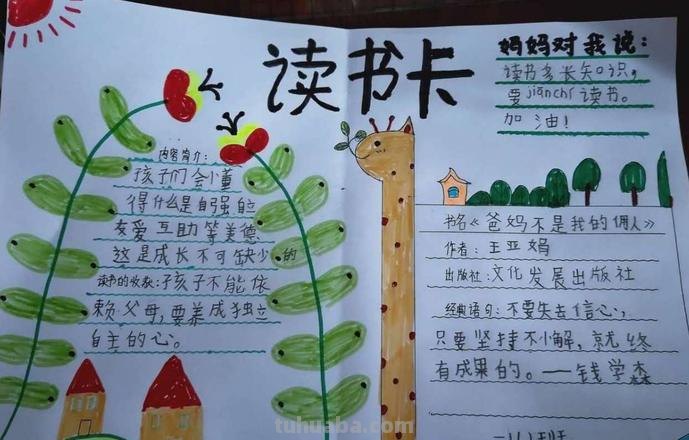 读书卡
妈妈对我说：
读书多长知识，
要jiānchí读书。
加油！
内容简介：
孩子们会小董
得什么是自强自立
友爱互助等美德
这是成长不可缺少的
读书的收获：孩子不能依
赖父母，要养成独立
自主的心。
书名《爸妈不是我的佣人》
作者：王亚妈
出版社：文化发展出版社
经典语句：不要失去信心，
只要坚持不小解，就终
有成果的。——钱学森
tuhuaba.com